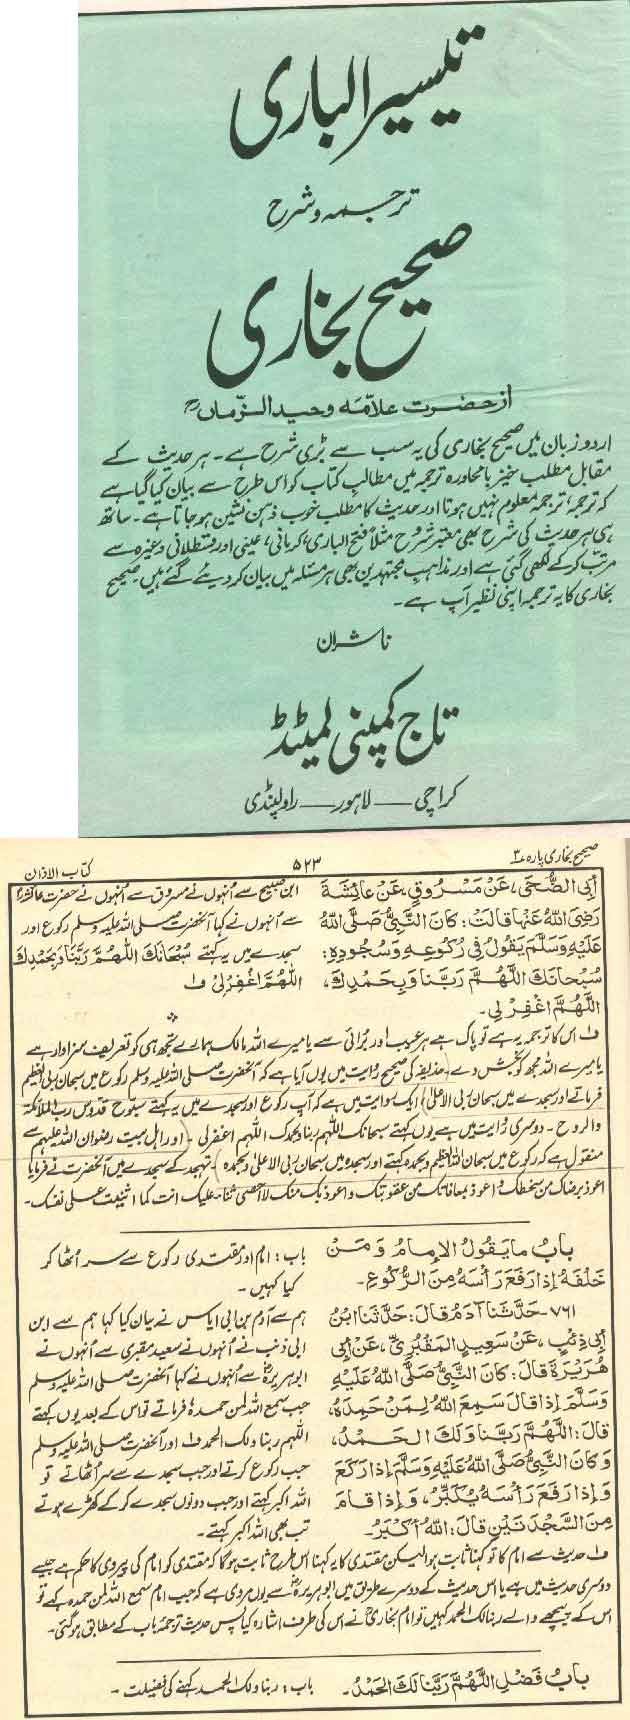 تیسیر الباری
ترجمہ و شرح
صحیح بخاری
از حضرت علامہ وحید الزمان رح
اردو زبان میں صحیح بخاری کی یہ سب سے بڑی شرح ہے۔ ہر حدیث کے
مقابل مطلب خیز بامحاورہ ترجمہ میں مطالب کتاب کو اس طرح سے بیان کیا گیا ہے
کہ ترجمہ، ترجمہ معلوم نہیں ہوتا اور حدیث کا مطلب خوب ذہن نشین ہو جاتا ہے۔ ساتھ
ہی ہر حدیث کی شرح بھی معتبر شروح مثلاً فتح الباری، کرمانی، عینی اور قسطلانی وغیرہ سے
مرتب کر کے لکھی گئی ہے اور مذاہب مجتہدین بھی ہر مسئلہ میں بیان کر دیئے گئے ہیں صحیح
بخاری کا یہ ترجمہ اپنی نظیر آپ ہے۔
ناشران
تاج کمپنی لمیٹڈ
کراچی — لاہور — راولپنڈی
صحیح بخاری پارہ ۳
۵۲۳
کتاب الاذان
أَبِي الضُّحَى، عَنْ مَسْرُوقٍ، عَنْ عَائِشَةَ
رَضِيَ اللَّهُ عَنْهَا قَالَتْ: كَانَ النَّبِيُّ صَلَّى اللَّهُ
عَلَيْهِ وَسَلَّمَ يَقُولُ فِي رُكُوعِهِ وَسُجُودِهِ:
سُبْحَانَكَ اللَّهُمَّ رَبَّنَا وَبِحَمْدِكَ،
اللَّهُمَّ اغْفِرْ لِي.
ابن صبیح سے اُنہوں نے مسروق سے اُنہوں نے حضرت عائشہ
سے اُنہوں نے کہا آنحضرت صلی اللہ علیہ وسلم رکوع اور
سجدے میں یہ کہتے سُبْحَانَكَ اللَّهُمَّ رَبَّنَا وَبِحَمْدِكَ
اللَّهُمَّ اغْفِرْ لِي ف۱
ف۱ اس کا ترجمہ یہ ہے تو پاک ہے ہر عیب اور بُرائی سے یا میرے اللہ مالک ہمارے تجھ ہی کو تعریف سزاوار ہے
یا میرے اللہ مجھ کو بخش دے (حذیفہ کی صحیح روایت میں یوں آیا ہے کہ آنحضرت صلی اللہ علیہ وسلم رکوع میں سبحان ربی العظیم
فرماتے اور سجدے میں سبحان ربی الاعلیٰ) ایک روایت میں ہے کہ آپ رکوع اور سجدے میں یہ کہتے سبوح قدوس رب الملائکۃ
والروح۔ دوسری روایت میں ہے یوں کہتے سبحانک اللہم ربنا وبحمدک اللہم اغفرلی۔ (اور اہل بیت رضوان اللہ علیہم سے
منقول ہے کہ رکوع میں سبحان ربی العظیم وبحمدہ کہتے اور سجدہ میں سبحان ربی الاعلیٰ وبحمدہ) تہجد کے سجدے میں آنحضرت نے فرمایا
اعوذ برضاک من سخطک واعوذ بمعافاتک من عقوبتک واعوذ بک منک لا احصی ثناءً علیک انت کما اثنیت علی نفسک۔
بَابُ مَا يَقُولُ الْإِمَامُ وَمَنْ
خَلْفَهُ إِذَا رَفَعَ رَأْسَهُ مِنَ الرُّكُوعِ۔
باب: امام اور مقتدی رکوع سے سر اُٹھا کر
کیا کہیں۔
۷۶۱- حَدَّثَنَا آدَمُ قَالَ: حَدَّثَنَا ابْنُ
أَبِي ذِئْبٍ، عَنْ سَعِيدٍ الْمَقْبُرِيِّ، عَنْ أَبِي
هُرَيْرَةَ قَالَ: كَانَ النَّبِيُّ صَلَّى اللَّهُ عَلَيْهِ
وَسَلَّمَ إِذَا قَالَ سَمِعَ اللَّهُ لِمَنْ حَمِدَهُ،
قَالَ: اللَّهُمَّ رَبَّنَا وَلَكَ الْحَمْدُ،
وَكَانَ النَّبِيُّ صَلَّى اللَّهُ عَلَيْهِ وَسَلَّمَ إِذَا رَكَعَ
وَإِذَا رَفَعَ رَأْسَهُ يُكَبِّرُ، وَإِذَا قَامَ
مِنَ السَّجْدَتَيْنِ قَالَ: اللَّهُ أَكْبَرُ.
ہم سے آدم بن ابی ایاس نے بیان کیا کہا ہم سے ابن
ابی ذئب نے اُنہوں نے سعید مقبری سے اُنہوں نے
ابوہریرہ سے اُنہوں نے کہا آنحضرت صلی اللہ علیہ وسلم
جب سمع اللہ لمن حمدہ فرماتے تو اس کے بعد یوں کہتے
اللہم ربنا ولک الحمد ف۱ اور آنحضرت صلی اللہ علیہ وسلم
جب رکوع کرتے اور جب سجدے سے سر اُٹھاتے تو
اللہ اکبر کہتے اور جب دونوں سجدے کر کے کھڑے ہوتے
تب بھی اللہ اکبر کہتے۔
ف۱ حدیث سے امام کا تو کہنا ثابت ہوا لیکن مقتدی کا یہ کہنا اس طرح ثابت ہوگا کہ مقتدی کو امام کی پیروی کا حکم ہے جیسے
دوسری حدیث میں ہے یا اس حدیث کے دوسرے طریق میں ابوہریرہ سے یوں مروی ہے کہ جب امام سمع اللہ لمن حمدہ کہے تو
اس کے پیچھے والے ربنا لک الحمد کہیں تو امام بخاری نے اس کی طرف اشارہ کیا پس حدیث ترجمہ باب کے مطابق ہوگئی۔
بَابُ فَضْلِ اللَّهُمَّ رَبَّنَا لَكَ الْحَمْدُ۔
باب: ربنا ولک الحمد کہنے کی فضیلت۔